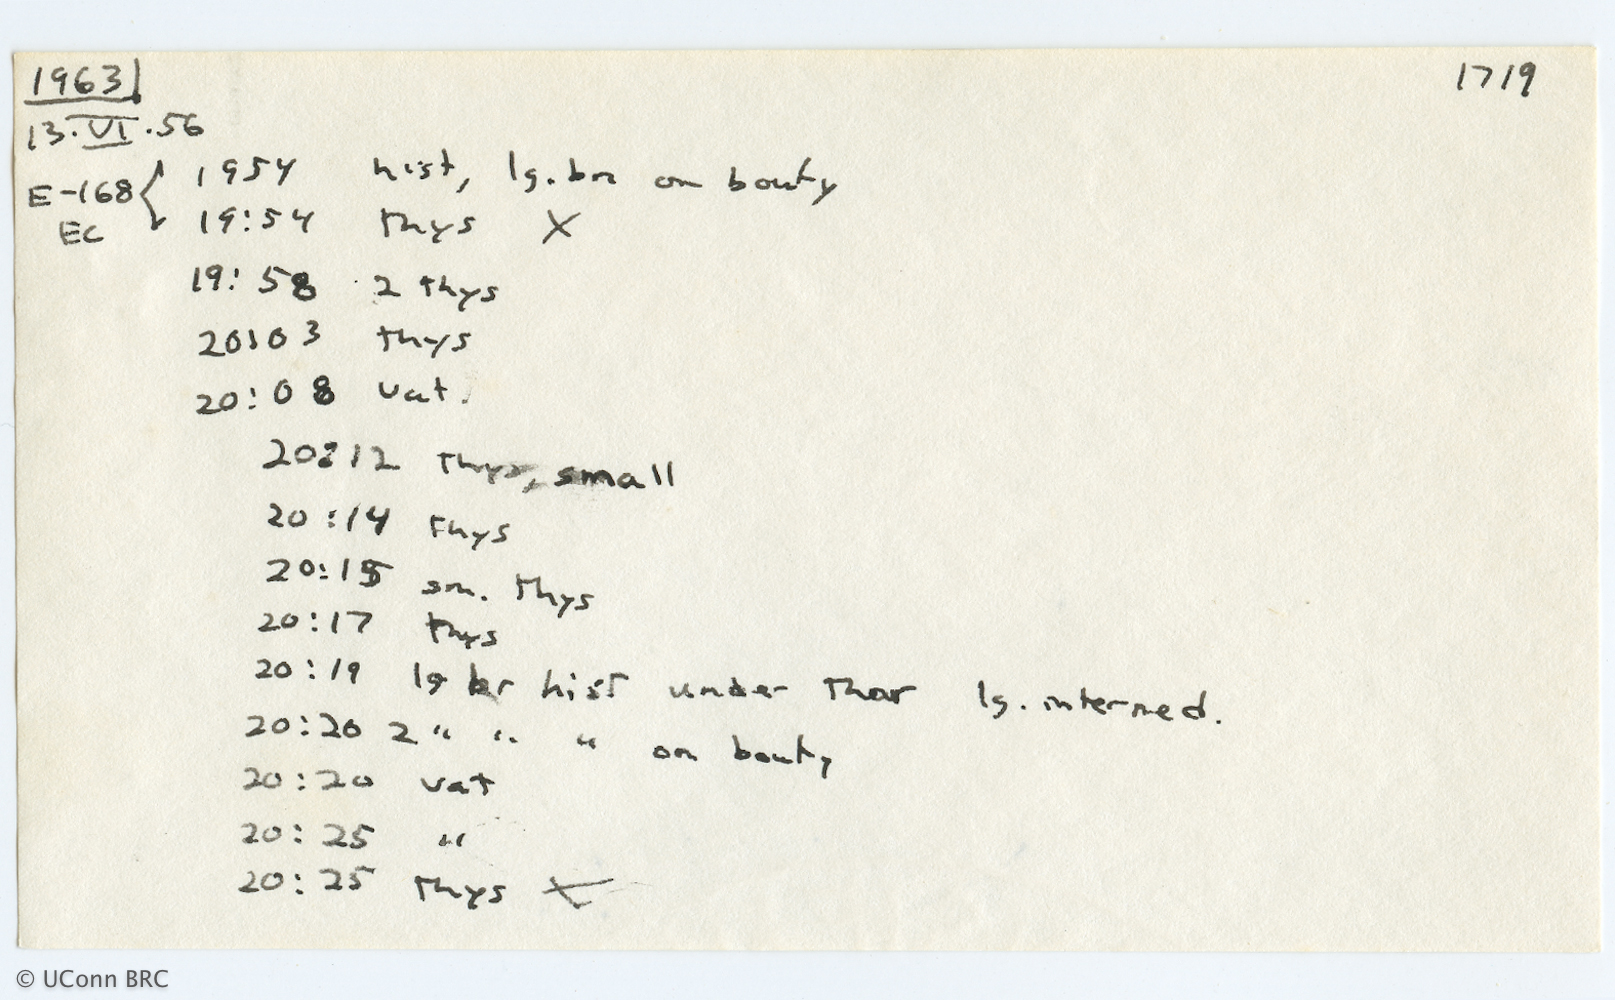 1963 1719
13.VI.56
E-168 { 1954 hist, lg. brn on bouty
Ec 19:54 thys X
19:58 2 thys
20:03 thys
20:08 vat.
20:12 thys, small
20:14 thys
20:15 sm. thys
20:17 thys
20:19 lg br hist under Thar lg. intermed.
20:20 2 " " " on bouty
20:20 vat
20:25 "
20:25 thys X
© UConn BRC